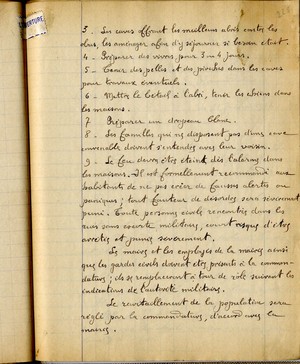 3 - Les caves offrent les meilleurs abris contre les
obus, les aménager afin d'y séjourner si besoin était.
4 - Préparer des vivres pour 3 ou 4 jours.
5 - Avoir des pelles et des pioches dans les caves
pour travaux éventuels.
6 - Mettre le bétail à l'abri, tenir les chiens dans
les maisons.
7 Préparer un drapeau blanc.
8 - Les familles qui ne disposent pas d'une cave
convenable doivent s'entendre avec leur voisin.
9 - Le feu devra être éteint dès l'alarme dans
les maisons. Il est formellement recommandé aux
habitants de ne pas créer de fausses alertes ou
paniques ; tout fauteur de désordres sera sévèrement
puni. Toute personne civile rencontrée dans les
rues sans escorte militaire, court risque d'être
arrêtée et punie sévèrement.
Les maires et les employés de la mairie ainsi
que les gardes civils doivent être présents à la comman-
dature ; ils se remplaceront à tour de rôle suivant les
indications de l'autorité militaire.
Le ravitaillement de la population sera
réglé par la commandature, d'accord avec la
mairie.